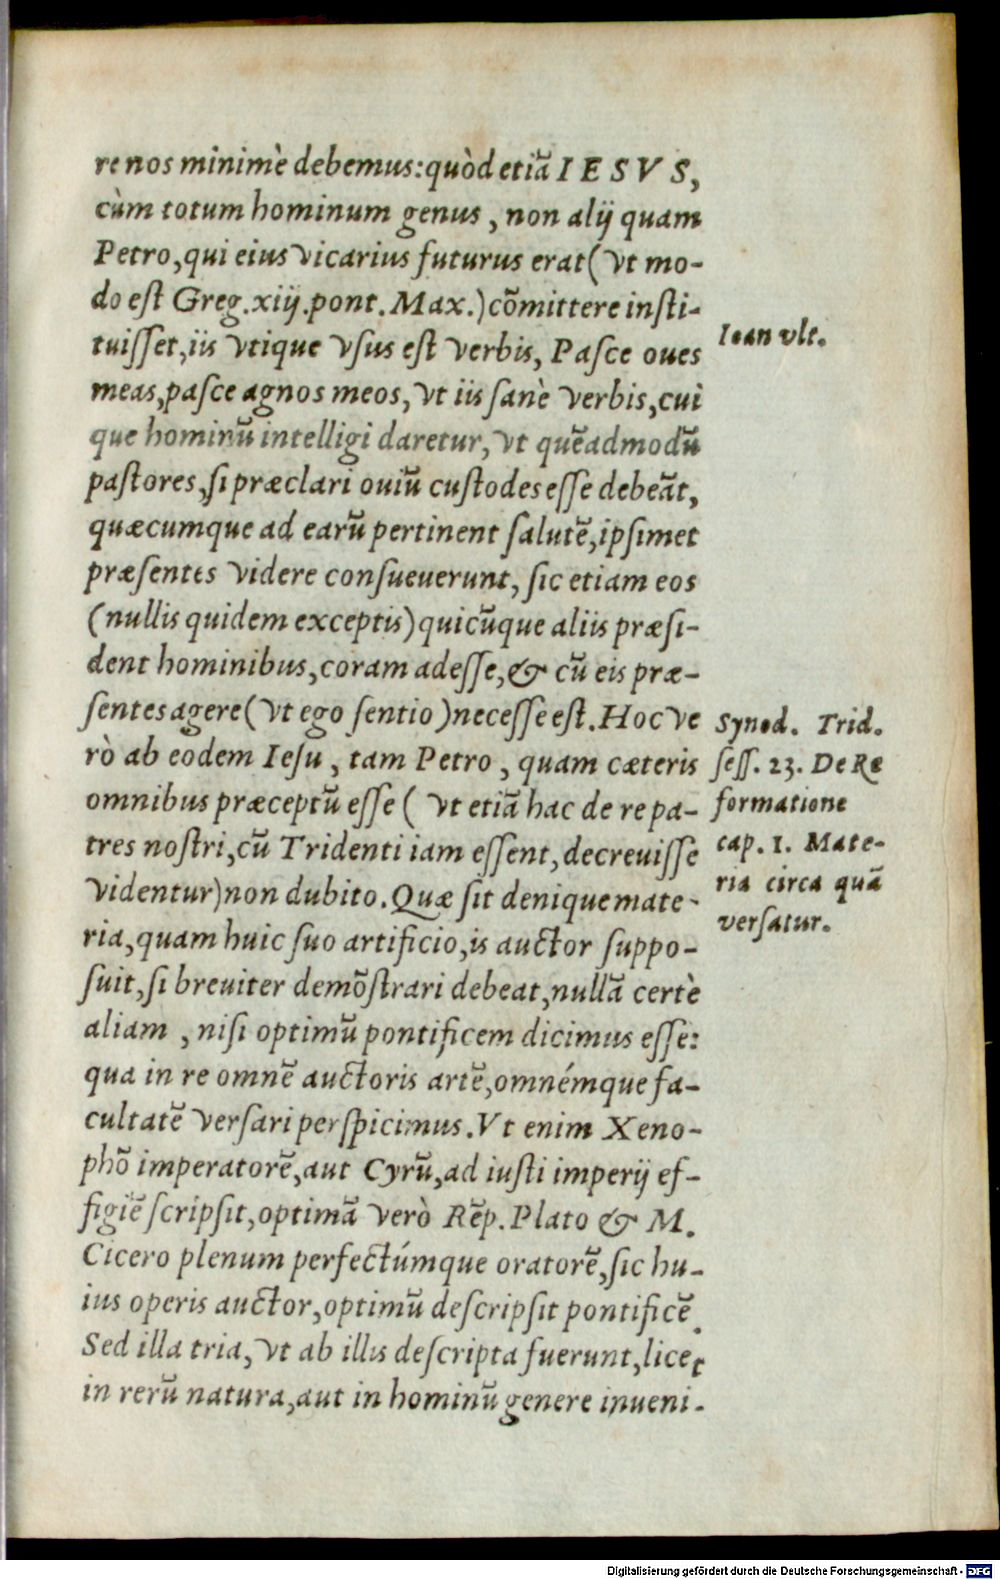 re nos minimè debemus: quòd etiã IESVS,
cùm totum hominum genus, non alij quam
Petro, qui eius vicarius futurus erat ( vt mo-
do est Greg. xiij. pont. Max.) cõmittere insti-
tuisset, iis vtique vsus est verbis, Pasce oues
meas, pasce agnos meos, vt iis sanè verbis, cui
que hominũ intelligi daretur, vt quẽadmodũ
pastores, si præclari ouiũ custodes esse debeãt,
quæcumque ad earũ pertinent salutẽ, ipsimet
præsentes videre consueuerunt, sic etiam eos
(nullis quidem exceptis) quicũque aliis præsi-
dent hominibus, coram adesse, & cũ eis præ-
sentes agere ( vt ego sentio ) necesse est. Hoc ve
rò ab eodem Iesu, tam Petro, quam cæteris
omnibus præceptũ esse ( vt etiã hac de re pa-
tres nostri, cũ Tridenti iam essent, decreuisse
videntur) non dubito. Quæ sit denique mate-
ria, quam huic suo artificio, is auctor suppo-
suit, si breuiter demõstrari debeat, nullã certè
aliam, nisi optimũ pontificem dicimus esse:
qua in re omnẽ auctoris artẽ, omnémque fa-
cultatẽ versari perspicimus. Vt enim Xeno-
phõ imperatorẽ, aut Cyrũ, ad iusti imperij ef-
figiẽ scripsit, optimã verò Rẽp. Plato & M.
Cicero plenum perfectúmque oratorẽ, sic hu-
ius operis auctor, optimũ descripsit pontificẽ.
Sed illa tria, vt ab illis descripta fuerunt, licet
in rerũ natura, aut in hominũ genere inueni-
Ioan vlt.
Synod. Trid.
sess. 23. De Re
formatione
cap. 1. Mate-
ria circa quã
versatur.
Digitalisierung gefördert durch die Deutsche Forschungsgemeinschaft - DFG